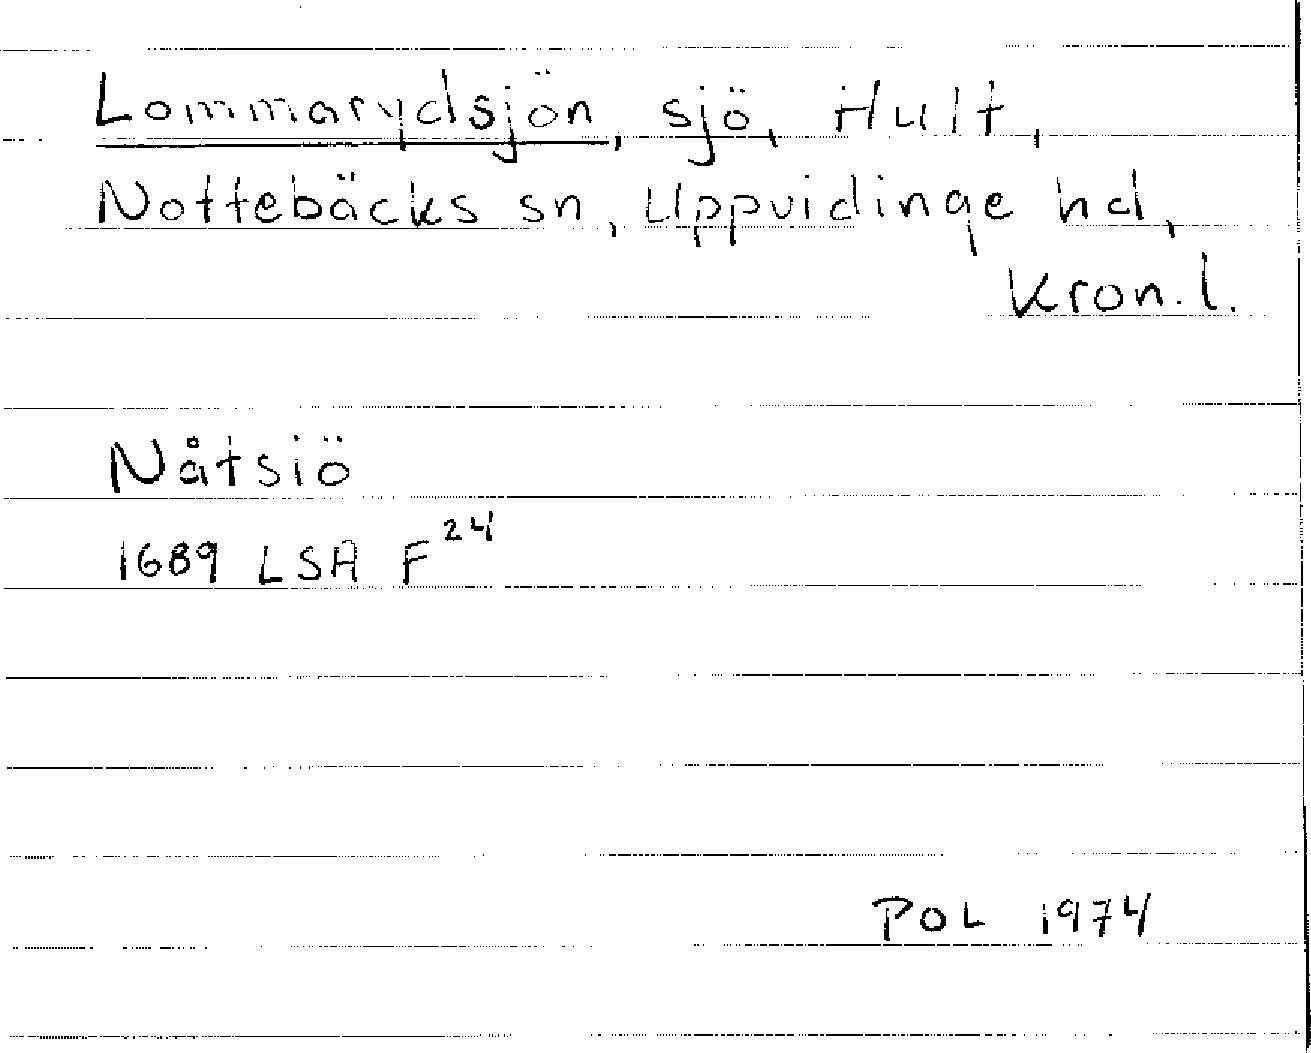 Lommarydsjön, sjö, Hult,
Nottebäcks sn, Uppvidinge hd,
Kron. l.
Nåtsiö
1689 LSA F 24
POL 1974